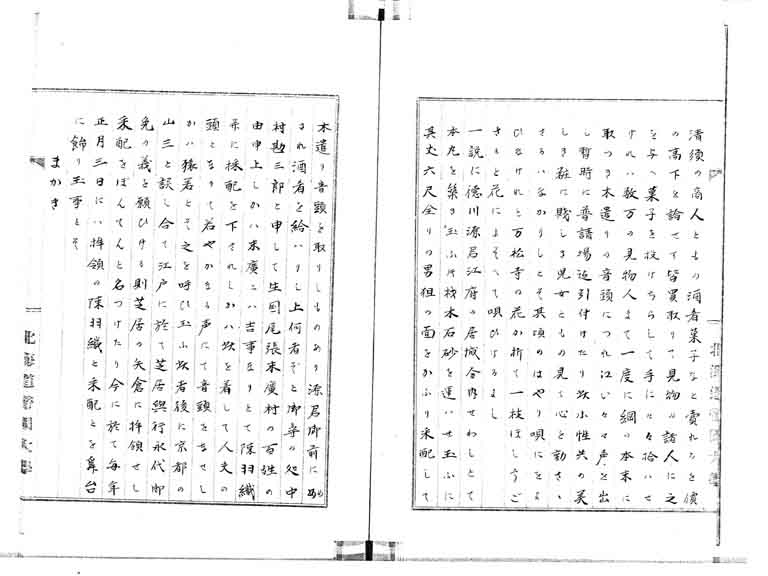 清須の商人ともの酒者菓子なと賣れるを價
の高下を論せす皆買取りて見物の諸人に之
を与へ菓子を投けちらして手に々々拾いせ
けれハ数万の見物人まて一度に綱の本末に
取つき木遣りの音頭につれ江い々々声を出
し暫時に普請場近引付けたり
しき粧に賎しき児女ともの見て心を動さゝ
さるハなかりしとそ其頃のはやり唄にも
ひなけれと万松寺の花か折て一枝ほしうご
さると花によそへて唄ひけるよし
一説に徳川源君江府の居城合内せわしとて
本丸を築き玉ふ所材木石砂を運いせ玉ふに
其丈六尺余りの男狙の面をかふり采配して
木遣り音頭を取りしものあり源君御前にめ
され酒者を給ハりし上何者ぞと御尋の処中
村勘三郎と申して生国尾張末廣村の百姓の
由申上しかハ末廣ハ吉事なりとて陳羽織
并に採配を下されしかハ
を着して人丈の
頭となりて若やかなる声にて音頭をなせし
かハ猿若とそ之を呼ひ玉ふ
者後に京都の
山三と談し合て江戸に於て芝居興行永代御
免の義を願ひける則芝居の矢倉に拝領せし
采配をぼんてんと名つけたり今に於て毎年
正月三日にハ拝領の陳羽織と采配とを舞台
に飾り玉事とそ
まかき